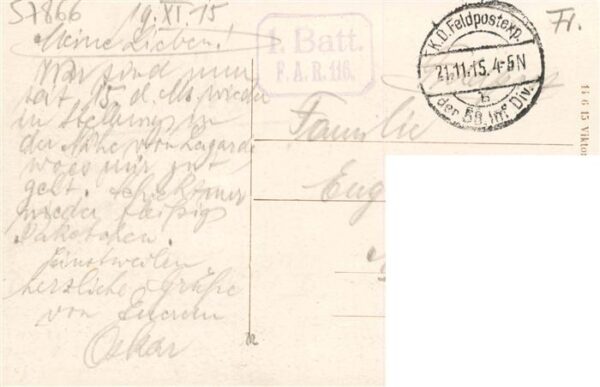 57866
19.XI.15
Meine Lieben!
Wir sind nun
seit 15. d. Mts. wieder
in Stellung in
der Nähe von Lagarde
wo es mir gut
geht. Schickt mir
wieder fleißig
Paketchen.
Einstweilen
herzliche Grüße
von Eurem
Oskar
1. Batt.
F.A.R. 116.
K.D. Feldpostexp.
21.11.15. 4-5N
b
der 58. Inf. Div.
Fr.
Familie
Eug
11 6 15 Viktor